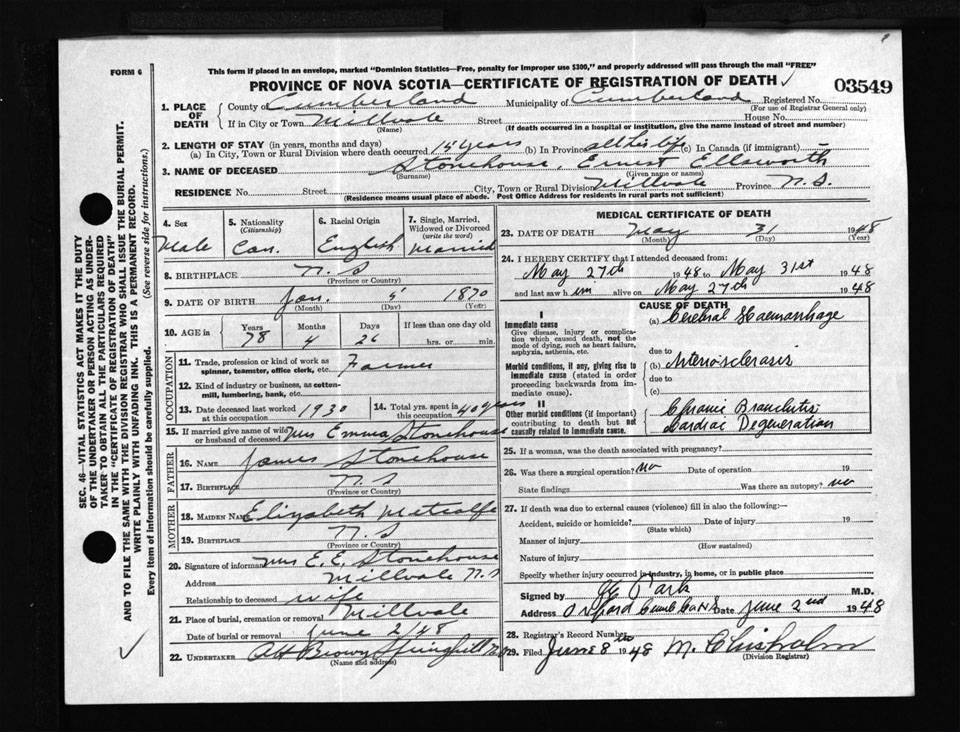 FORM 6
This form if placed in an envelope, marked "Dominion Statistics—Free, penalty for improper use $300," and properly addressed will pass through the mail "FREE"
PROVINCE OF NOVA SCOTIA—CERTIFICATE OF REGISTRATION OF DEATH
03549
1. PLACE OF DEATH
County of Cumberland Municipality of Cumberland Registered No.
(For use of Registrar General only)
If in City or Town Millvale Street House No.
(Name) (If death occurred in a hospital or institution, give the name instead of street and number)
2. LENGTH OF STAY (in years, months and days)
(a) In City, Town or Rural Division where death occurred 15 years (b) In Province all his life (c) In Canada (if immigrant)
3. NAME OF DECEASED Stonehouse, Ernest Ellsworth
(Surname) (Given name or names)
RESIDENCE No. Street City, Town or Rural Division Millvale Province N.S.
(Residence means usual place of abode. Post Office Address for residents in rural parts not sufficient)
SEC. 46—VITAL STATISTICS ACT MAKES IT THE DUTY
OF THE UNDERTAKER OR PERSON ACTING AS UNDER-
TAKER TO OBTAIN ALL THE PARTICULARS REQUIRED
IN THE "CERTIFICATE OF REGISTRATION OF DEATH"
AND TO FILE THE SAME WITH THE DIVISION REGISTRAR WHO SHALL ISSUE THE BURIAL PERMIT.
WRITE PLAINLY WITH UNFADING INK. THIS IS A PERMANENT RECORD.
Every item of information should be carefully supplied. (See reverse side for instructions.)
4. Sex
Male
5. Nationality
(Citizenship)
Can.
6. Racial Origin
English
7. Single, Married,
Widowed or Divorced
(write the word)
Married
8. BIRTHPLACE N.S
(Province or Country)
9. DATE OF BIRTH Jan. 5 1870
(Month) (Day) (Year)
10. AGE in Years Months Days If less than one day old
78 4 26 hrs. or min.
OCCUPATION
11. Trade, profession or kind of work as
spinner, teamster, office clerk, etc. Farmer
12. Kind of industry or business, as cotton-
mill, lumbering, bank, etc.
13. Date deceased last worked
at this occupation 1930
14. Total yrs. spent in
this occupation 40 years
15. If married give name of wife
or husband of deceased Mrs Emma Stonehouse
FATHER
16. NAME James Stonehouse
17. BIRTHPLACE N.S
(Province or Country)
MOTHER
18. MAIDEN NAME Elizabeth Metcalfe
19. BIRTHPLACE N.S
(Province or Country)
20. Signature of informant Mrs E. E. Stonehouse
Address Millvale N.S
Relationship to deceased wife
21. Place of burial, cremation or removal Millvale
Date of burial or removal June 2/48
22. UNDERTAKER AH Brown Springhill N.S.
(Name and address)
MEDICAL CERTIFICATE OF DEATH
23. DATE OF DEATH May 31 1948
(Month) (Day) (Year)
24. I HEREBY CERTIFY that I attended deceased from:
May 27th 1948 to May 31st 1948
and last saw him alive on May 27th 1948
CAUSE OF DEATH
I
Immediate cause
Give disease, injury or complica-
tion which caused death, not the
mode of dying, such as heart failure,
asphyxia, asthenia, etc.
(a) Cerebral Haemorrhage
due to
Morbid conditions, if any, giving rise to
immediate cause (stated in order
proceeding backwards from im-
mediate cause).
(b) Arterio-sclerosis
due to
(c)
II
Other morbid conditions (if important)
contributing to death but not
causally related to immediate cause.
Chronic Bronchitis
Cardiac Degeneration
25. If a woman, was the death associated with pregnancy?
26. Was there a surgical operation? no Date of operation 19
State findings Was there an autopsy? no
27. If death was due to external causes (violence) fill in also the following:—
Accident, suicide or homicide? Date of injury 19
(State which)
Manner of injury
(How sustained)
Nature of injury
Specify whether injury occurred in industry, in home, or in public place
Signed by Park M.D.
Address Oxford Cumb Co NS Date June 2nd 1948
28. Registrar's Record Number
29. Filed June 8th 1948 M. Chisholm
(Division Registrar)